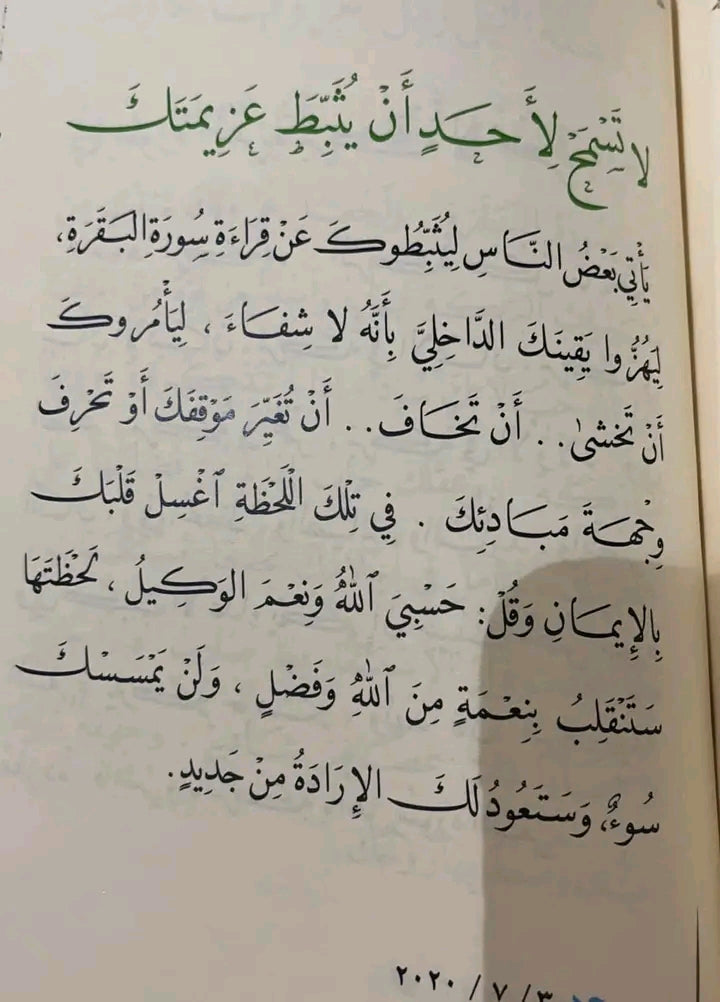 لا تَسْمَحْ لِأَحَدٍ أَنْ يُثَبِّطَ عَزِيمَتَكَ
يَأْتِي بَعْضُ النَّاسِ لِيُثَبِّطُوكَ عَنْ قِرَاءَةِ سُورَةِ البَقَرَةِ،
لِيَهُزُّوا يَقِينَكَ الدَّاخِلِيَّ بِأَنَّهُ لا شِفَاءَ ، لِيَأْمُروكَ
أَنْ تَخشىٰ.. أَنْ تَخَافَ.. أَنْ تُغَيِّرَ مَوْقِفَكَ أَوْ تَحْرِفَ
وِجْهَةَ مَبَادِئِكَ . فِي تِلْكَ اللَّحْظَةِ ٱغْسِلْ قَلْبَكَ
بِالإِيمَانِ وَقُلْ: حَسْبِيَ ٱللّٰهُ وَنِعْمَ الوَكِيلُ ، لَحْظَتَهَا
سَتَنْقَلِبُ بِنِعْمَةٍ مِنَ ٱللّٰهِ وَفَضْلٍ ، وَلَنْ يَمْسَسْكَ
سُوءٌ، وَسَتَعُودُ لَكَ الإِرَادَةُ مِنْ جَدِيدٍ.
٣ / ٧ / ٢٠٢٠